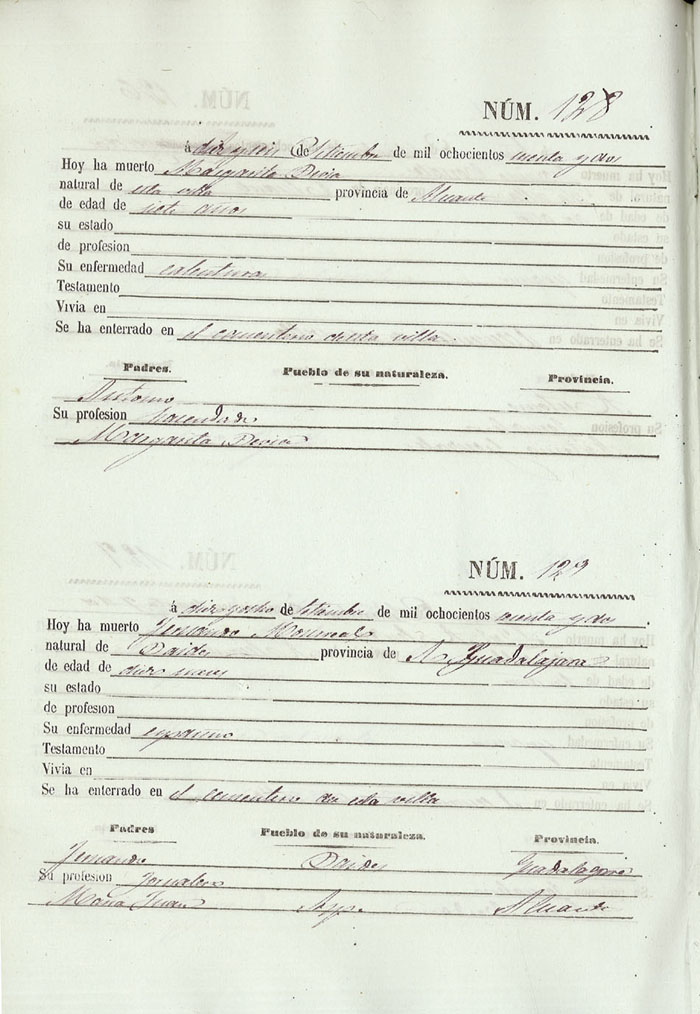 NÚM. 128
á diez y seis de Setiembre de mil ochocientos sesenta y dos
Hoy ha muerto Margarita Devia
natural de esta villa provincia de Alicante
de edad de siete años
su estado
de profesion
Su enfermedad calentura
Testamento
Vivia en
Se ha enterrado en el cementerio de esta villa
Padres. Pueblo de su naturaleza. Provincia.
Antonio
Su profesion hacendado
Margarita Devia
NÚM. 129
á diez y ocho de Setiembre de mil ochocientos sesenta y dos.
Hoy ha muerto Fernando
natural de provincia de Guadalajara
de edad de diez meses
su estado
de profesion
Su enfermedad espasmo
Testamento
Vivia en
Se ha enterrado en el cementerio de esta villa
Padres Pueblo de su naturaleza. Provincia.
Fernando Guadalajara
Su profesion Jornalero
Maria Alicante